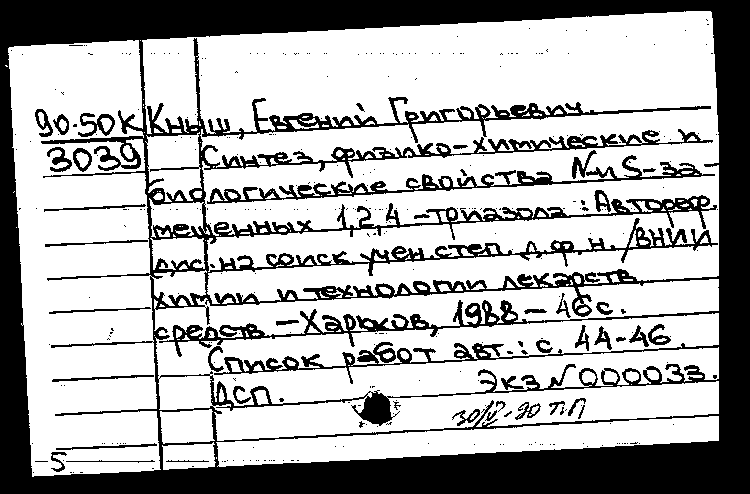 90-50К Кныш, Евгений Григорьевич.
3039 Синтез, физико-химические и
биологические свойства N- и S-за-
мещенных 1,2,4-триазола : Автореф.
дис. на соиск учен. степ. д. ф. н. /ВНИИ
химии и технологии лекарств.
средств. – Харьков, 1988. – 46 с.
Список работ авт.: с. 44-46.
ДСП. Экз N 000033.
90 ПП
5